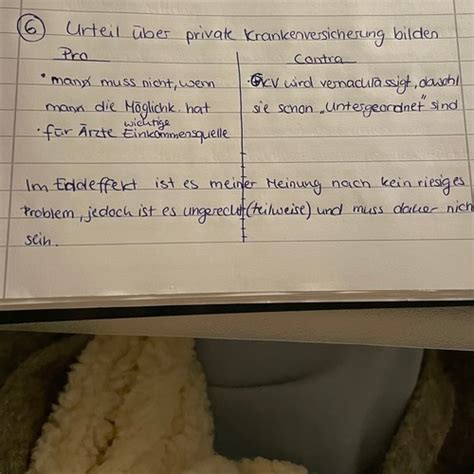 ⑥ Urteil über private Krankenversicherung bilden
Pro
Contra
• manx muss nicht, wenn
manx die Möglichk. hat
• für Ärzte wichtige Einkommensquelle
• GKV wird vernachlässigt, obwohl
sie schon "Untergeordnet" sind
Im Endeffekt ist es meiner Meinung nach kein riesiges
Problem, jedoch ist es ungerecht (teilweise) und muss daher nich
sein.